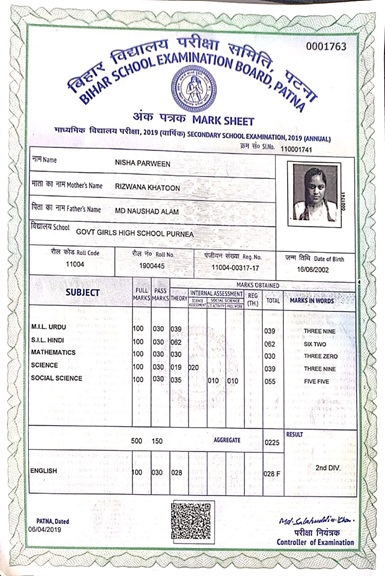 0001763
बिहार विद्यालय परीक्षा समिति, पटना
BIHAR SCHOOL EXAMINATION BOARD, PATNA
अंक पत्रक MARK SHEET
माध्यमिक विद्यालय परीक्षा, 2019 (वार्षिक) SECONDARY SCHOOL EXAMINATION, 2019 (ANNUAL)
क्रम सं० Sl.No. 110001741
नाम Name NISHA PARWEEN
माता का नाम Mother's Name RIZWANA KHATOON
पिता का नाम Father's Name MD NAUSHAD ALAM
विद्यालय School GOVT GIRLS HIGH SCHOOL PURNEA
रौल कोड Roll Code रौल नं० Roll No. पंजीयन संख्या Reg. No. जन्म तिथि Date of Birth
11004 1900445 11004-00317-17 16/06/2002
SUBJECT FULL MARKS PASS MARKS THEORY MARKS OBTAINED INTERNAL ASSESSMENT REG (TH.) TOTAL MARKS IN WORDS
M.I.L. URDU 100 030 039 039 THREE NINE
S.I.L. HINDI 100 030 062 062 SIX TWO
MATHEMATICS 100 030 030 030 THREE ZERO
SCIENCE 100 030 019 020 039 THREE NINE
SOCIAL SCIENCE 100 030 035 010 010 055 FIVE FIVE
500 150 AGGREGATE 0225 RESULT
ENGLISH 100 030 028 028 F 2nd DIV.
PATNA, Dated
06/04/2019
परीक्षा नियंत्रक
Controller of Examination